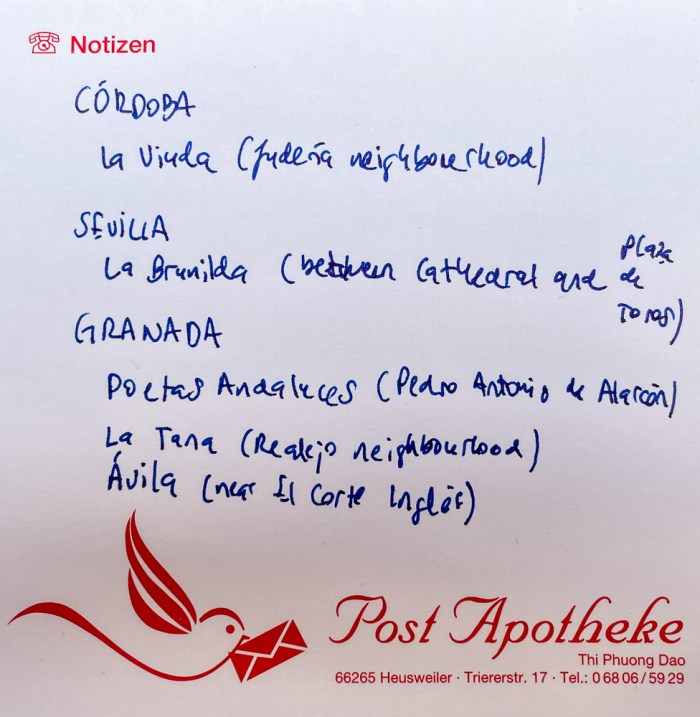 Notizen
CÓRDOBA
La Viuda (Judería neighbourhood)
SEVILLA
La Brunilda (between Cathedral and Plaza de Toros)
GRANADA
Poetas Andaluces (Pedro Antonio de Alarcón)
La Tana (Realejo neighbourhood)
Ávila (near El Corte Inglés)
Post Apotheke
Thi Phuong Dao
66265 Heusweiler · Triererstr. 17 · Tel.: 0 68 06 / 59 29